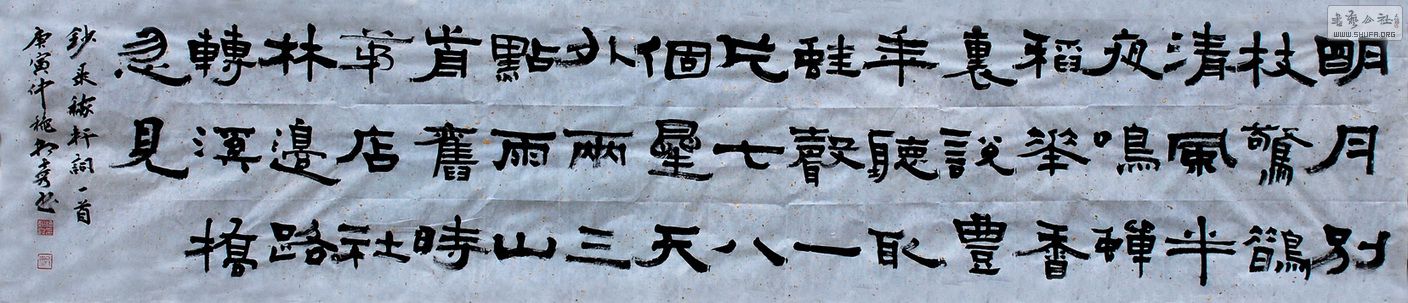 明月別
枝驚鵲
清風半
夜鳴蟬
稻華香
裏說豐
年聽取
蛙聲一
片七八
個星天
外兩三
點雨山
前舊時
茅店社
林邊路
轉溪橋
忽見
鈔辛稼軒詞一首
庚寅仲秋
書藝公社
WWW.SHUFA.ORG